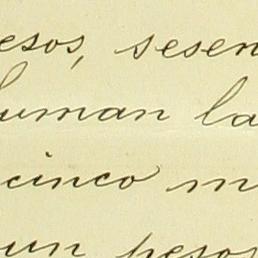 esos, sesen
uman la
cinco m
un pesos